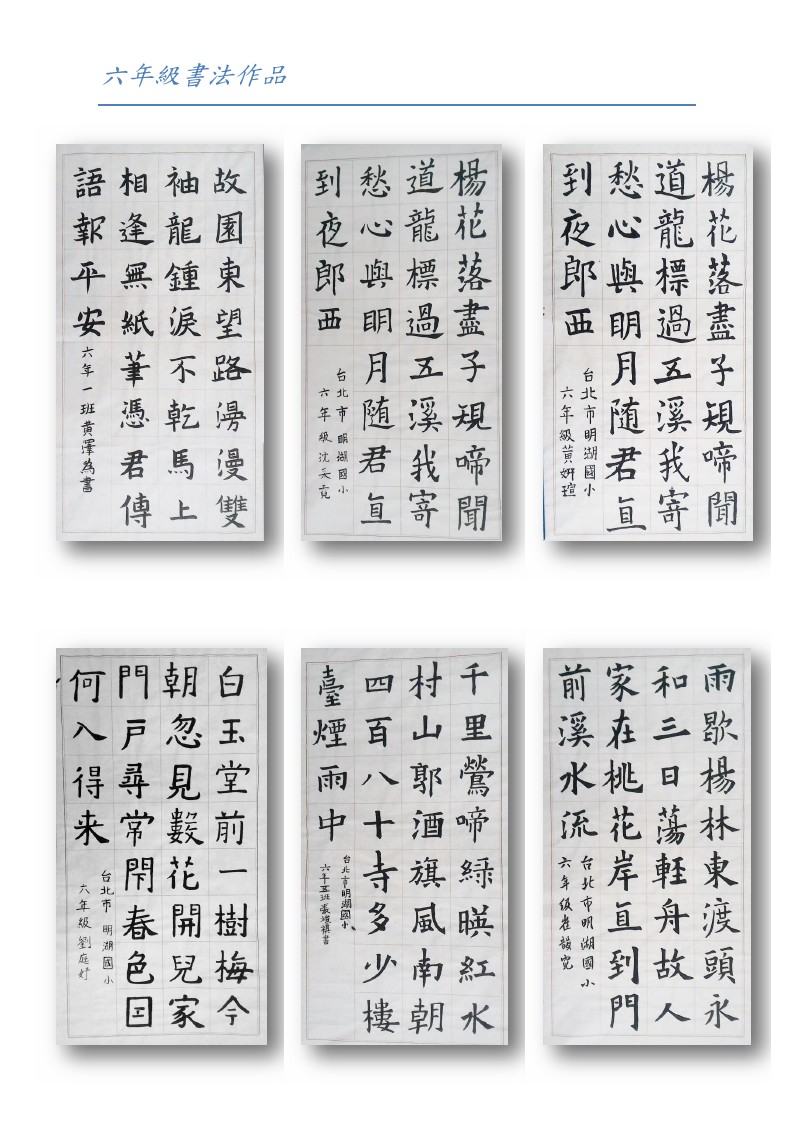 六年級書法作品
故園東望路漫漫雙
袖龍鍾淚不乾馬上
相逢無紙筆憑君傳
語報平安
六年一班黃澤為書
楊花落盡子規啼聞
道龍標過五溪我寄
愁心與明月随君直
到夜郎西
台北市明湖國小
六年級沈
楊花落盡子規啼聞
道龍標過五溪我寄
愁心與明月随君直
到夜郎西
台北市明湖國小
六年級黃妍瑄
白玉堂前一樹梅今
朝忽見數花開兒家
門戶尋常閇春色因
何入得来
台北市明湖國小
六年級劉庭妤
千里鶯啼綠暎紅水
村山郭酒旗風南朝
四百八十寺多少樓
臺煙雨中
台北市明湖國小
六年五班書
雨歇楊林東渡頭永
和三日蕩輕舟故人
家在桃花岸直到門
前溪水流
台北市明湖國小
六年級崔韻